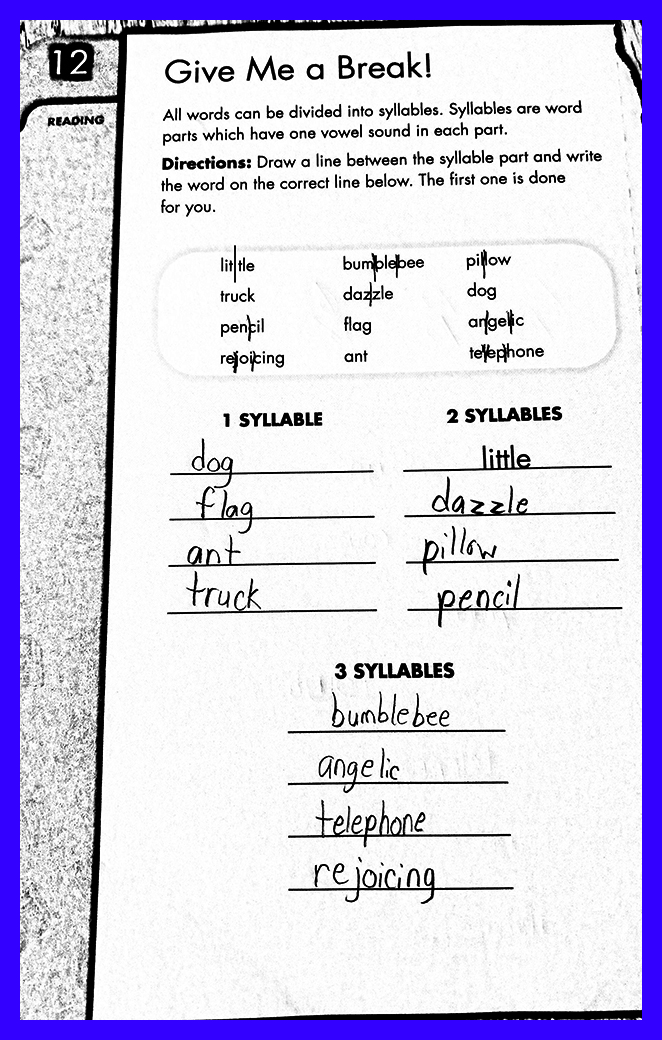 12
READING
Give Me a Break!
All words can be divided into syllables. Syllables are word
parts which have one vowel sound in each part.
Directions: Draw a line between the syllable part and write
the word on the correct line below. The first one is done
for you.
little bumblebee pillow
truck dazzle dog
pencil flag angelic
rejoicing ant telephone
1 SYLLABLE 2 SYLLABLES
dog little
flag dazzle
ant pillow
truck pencil
3 SYLLABLES
bumblebee
angelic
telephone
rejoicing